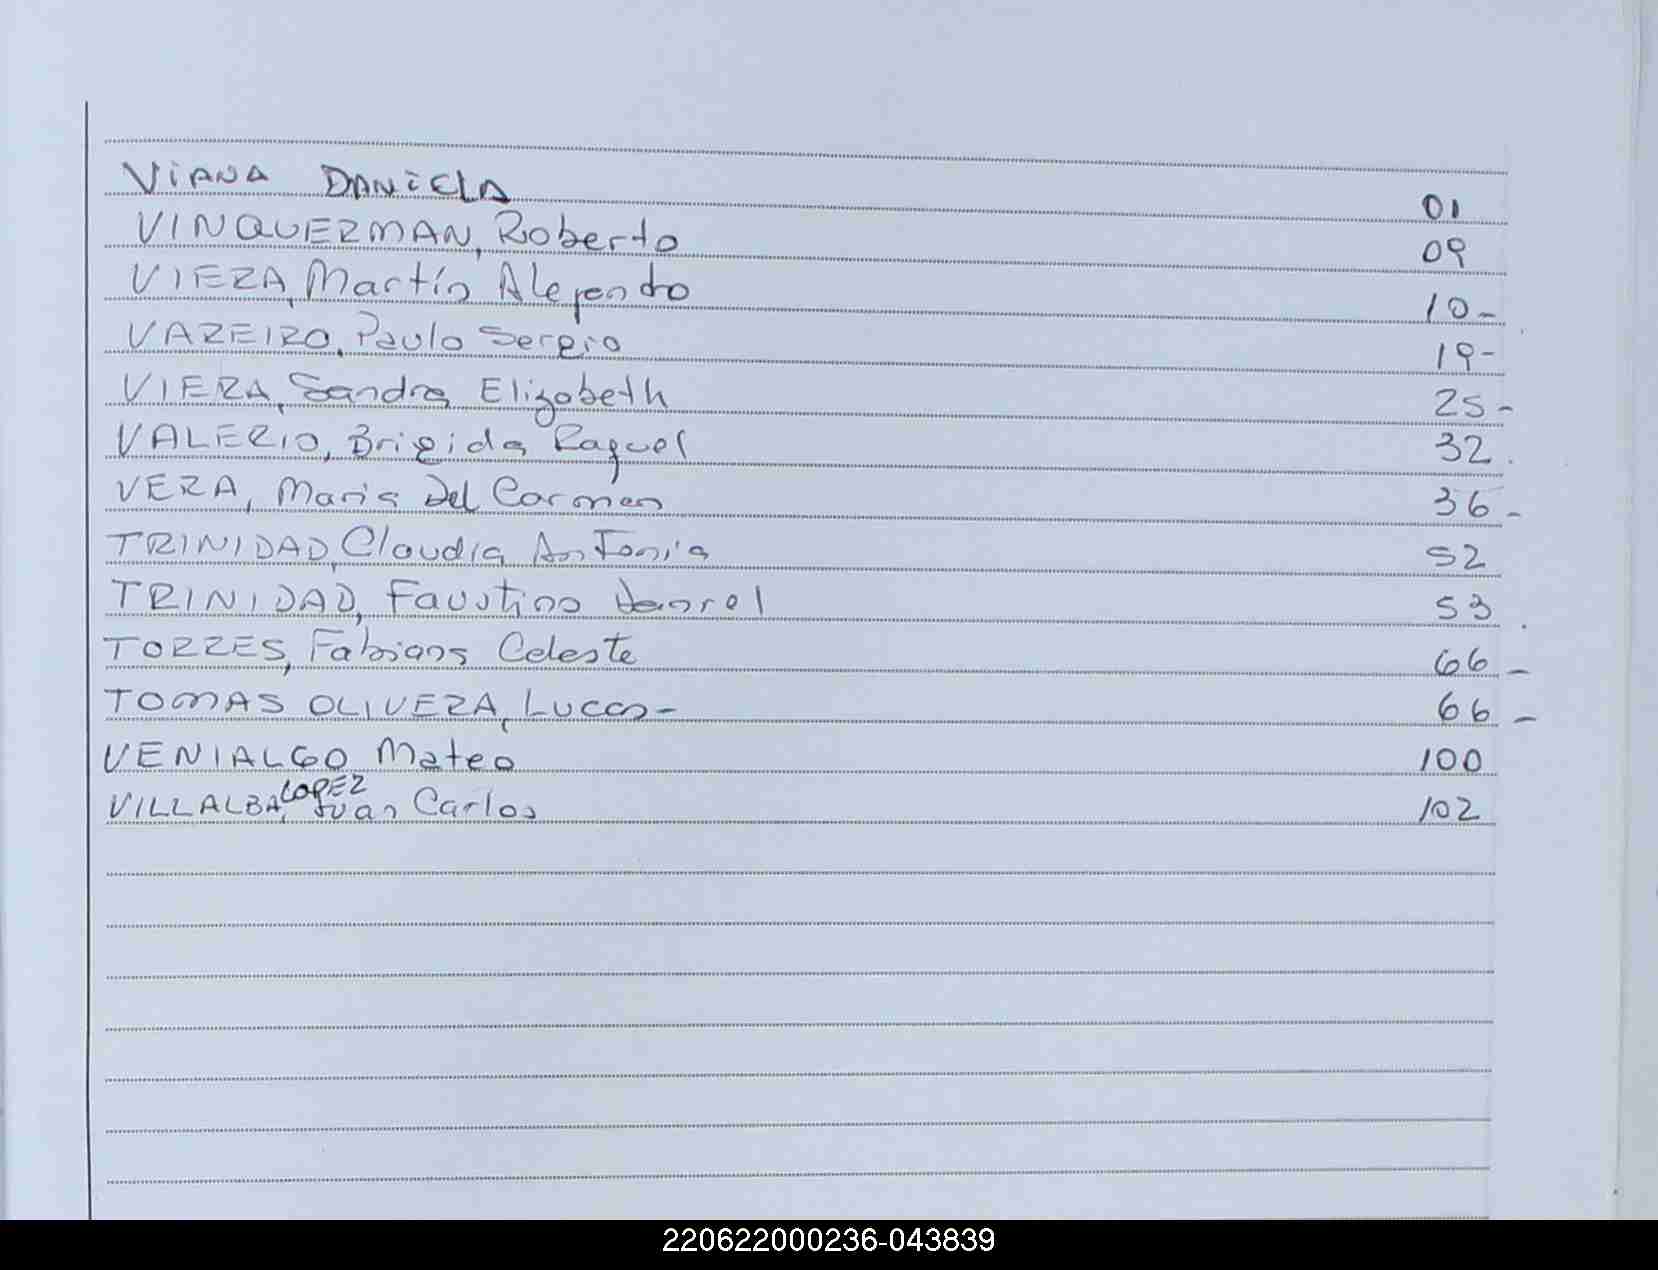 VIANA DANIELA 01
VINQUERMAN, Roberto 09
VIERA, Martín Alejandro 10-
VAREIRO, Paulo Sergio 19-
VIERA, Sandra Elizabeth 25-
VALERIO, Brigida Raquel 32.
VERA, Maria Del Carmen 36-
TRINIDAD, Claudia Antonia 52
TRINIDAD, Faustino 53.
TORRES, Fabiana Celeste 66-
TOMAS OLIVERA, Lucas- 66-
VENIALGO Mateo 100
LOPEZ
VILLALBA, Juan Carlos 102
220622000236-043839